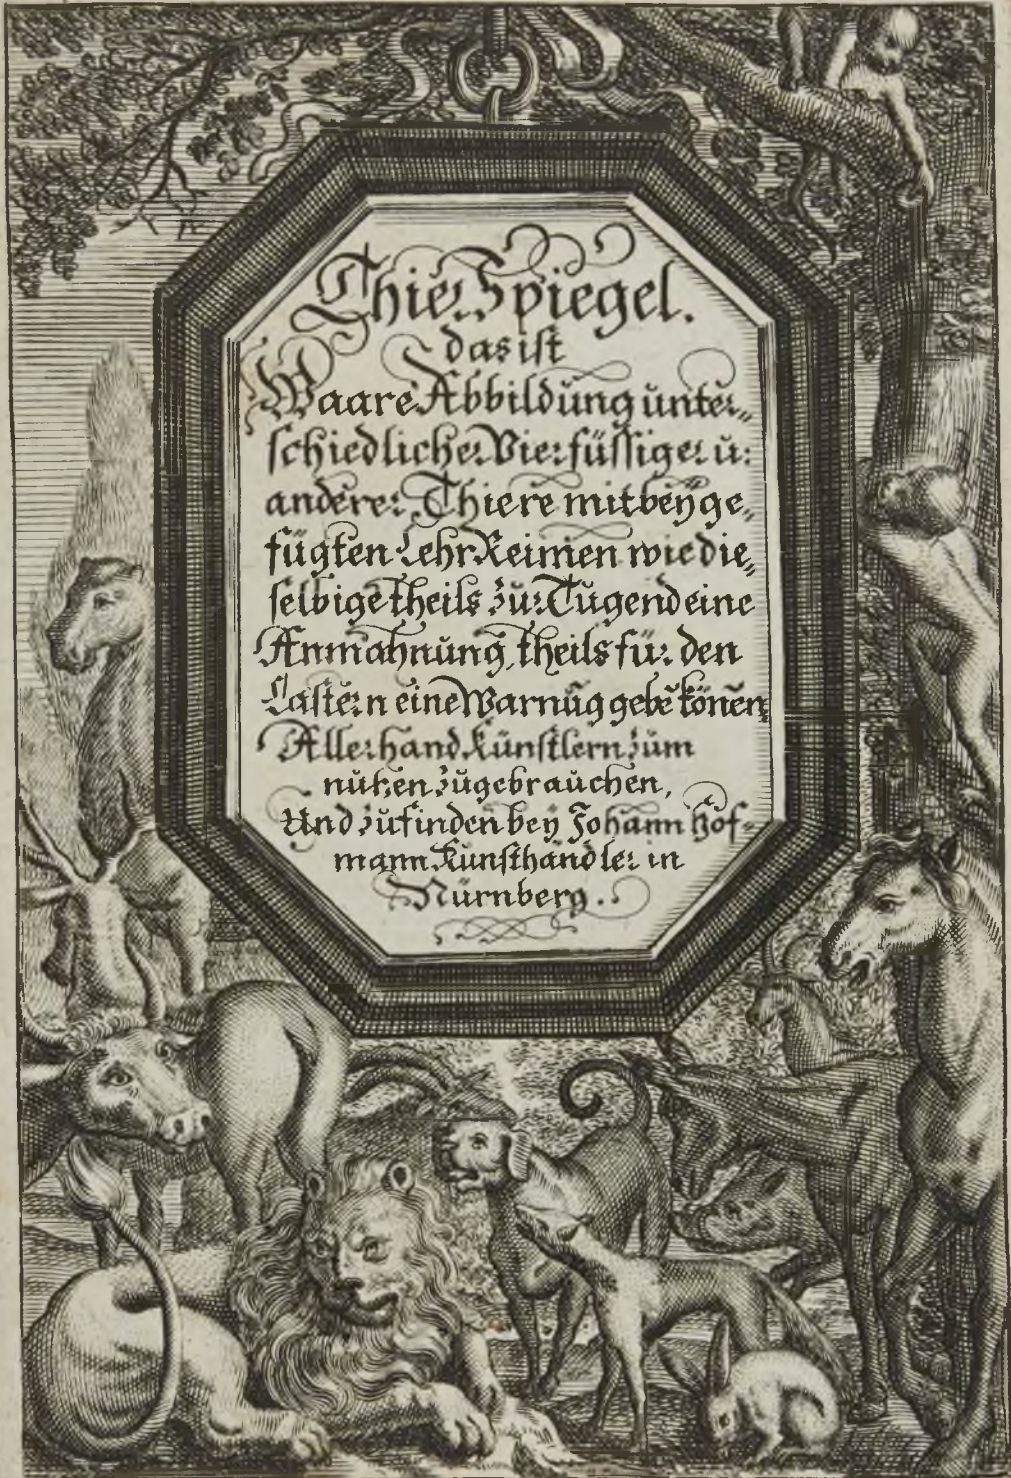 Thier Spiegel.
das ist
Waare Abbildung unter„
schiedlicher Vierfüssiger ū:
anderer Thiere mit beÿge„
fügten Lehr Reimen wie die„
selbige theils zur Tugend eine
Anmahnung, theils für den
Lastern eine Warnūg gebē könēn,
Allerhand Künstlern zum
nutzen zugebrauchen,
Und zufinden beÿ Johann Hof-
mann Kunsthändler in
Nürnberg.